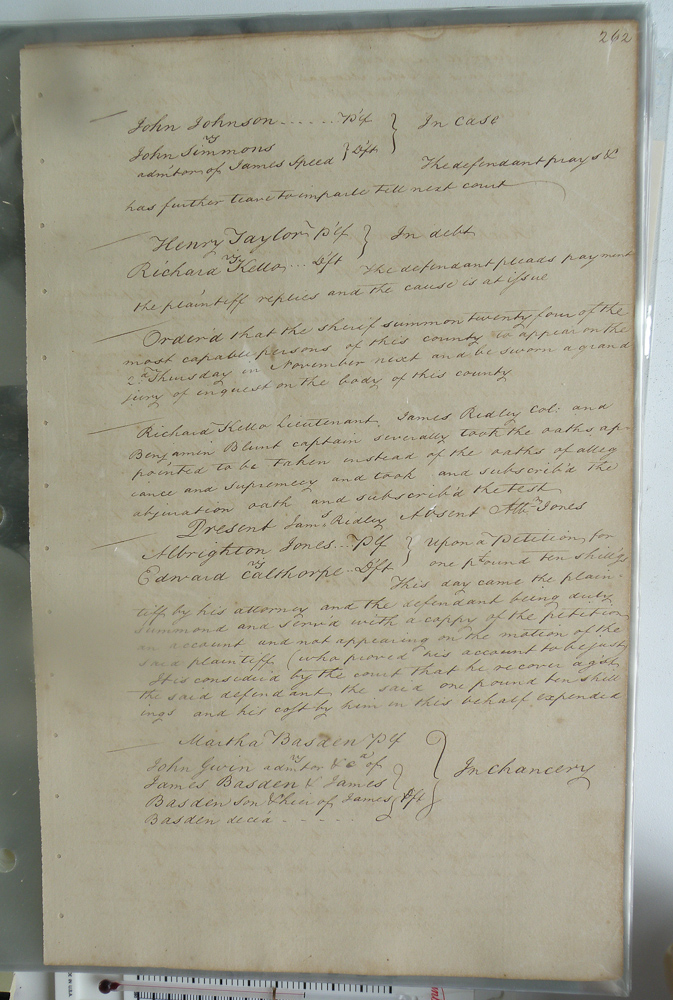 262
John Johnson ...... Płf } In case
vs
John Simmons
admtor of James Speed } Dft
The defendant prays &
has further leave to imparle till next court
Henry Taylor Plf } In debt
vs
Richard Kello... Dft The defendant pleads payment
the plaintiff replies and the cause is at issue
Order'd that the sherif summon twenty four of the
most capable persons of this county to appear on the
2d Thursday in November next and be sworn a grand
jury of inquest on the body of this county
Richard Kello Lieutenant, James Ridley Col: and
Benjamin Blunt captain severally took the oaths ap-
pointed to be taken instead of the oaths of alleg
iance and supremecy and took and subscrib'd the
abjuration oath and subscrib'd the test
Present Jams Ridley Absent Jones
Albrighton Jones... Plf } upon a Petition for
vs
Edward Calthorpe.. Dft one pound ten shillgs
This day came the plain-
tiff by his attorney and the defendant being duly
summond and serv'd with a coppy of the petition
an account and not appearing on the motion of the
said plaintiff (who proved his account to be just)
It is consider'd by the court that he recover agst
the said defendant the said one pound ten shill
ings and his cost by him in this behalf expended
Martha Basden Plf
vs
John Gwin admtor &ca of
James Basden & James } In chancery
Basden son & heir of James } Dft
Basden decd - - - - -